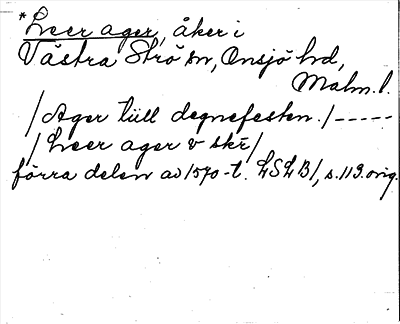 *Leer ager, åker i
Västra Strö sn, Onsjö hd,
Malm. l.
/Ager tiill degnefesten./-----
/Leer ager v skr/
förra delen av 1570-t. LSLB1, s. 119. orig.